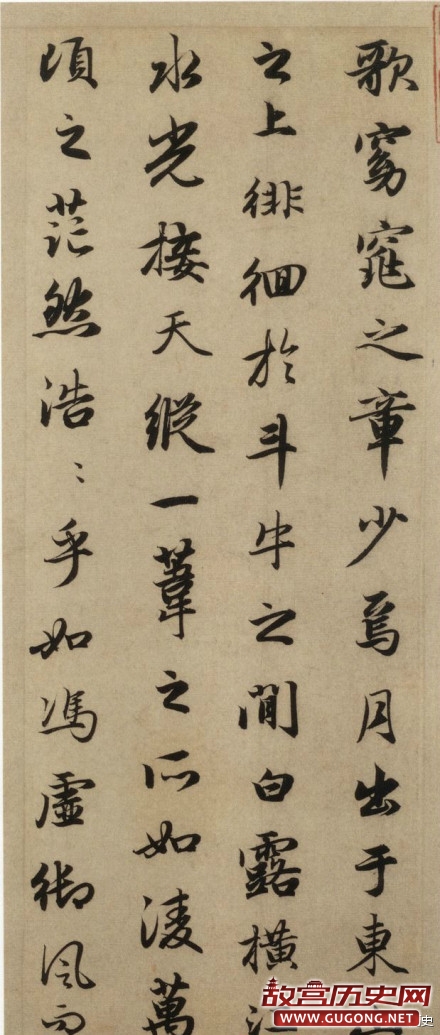 歌窈窕之章少焉月出于東
之上徘徊於斗牛之間白露橫江
水光接天縱一葦之所如凌萬
頃之茫然浩〻乎如馮虛御風而
故宫历史网
WWW.GUGONG.NET
史